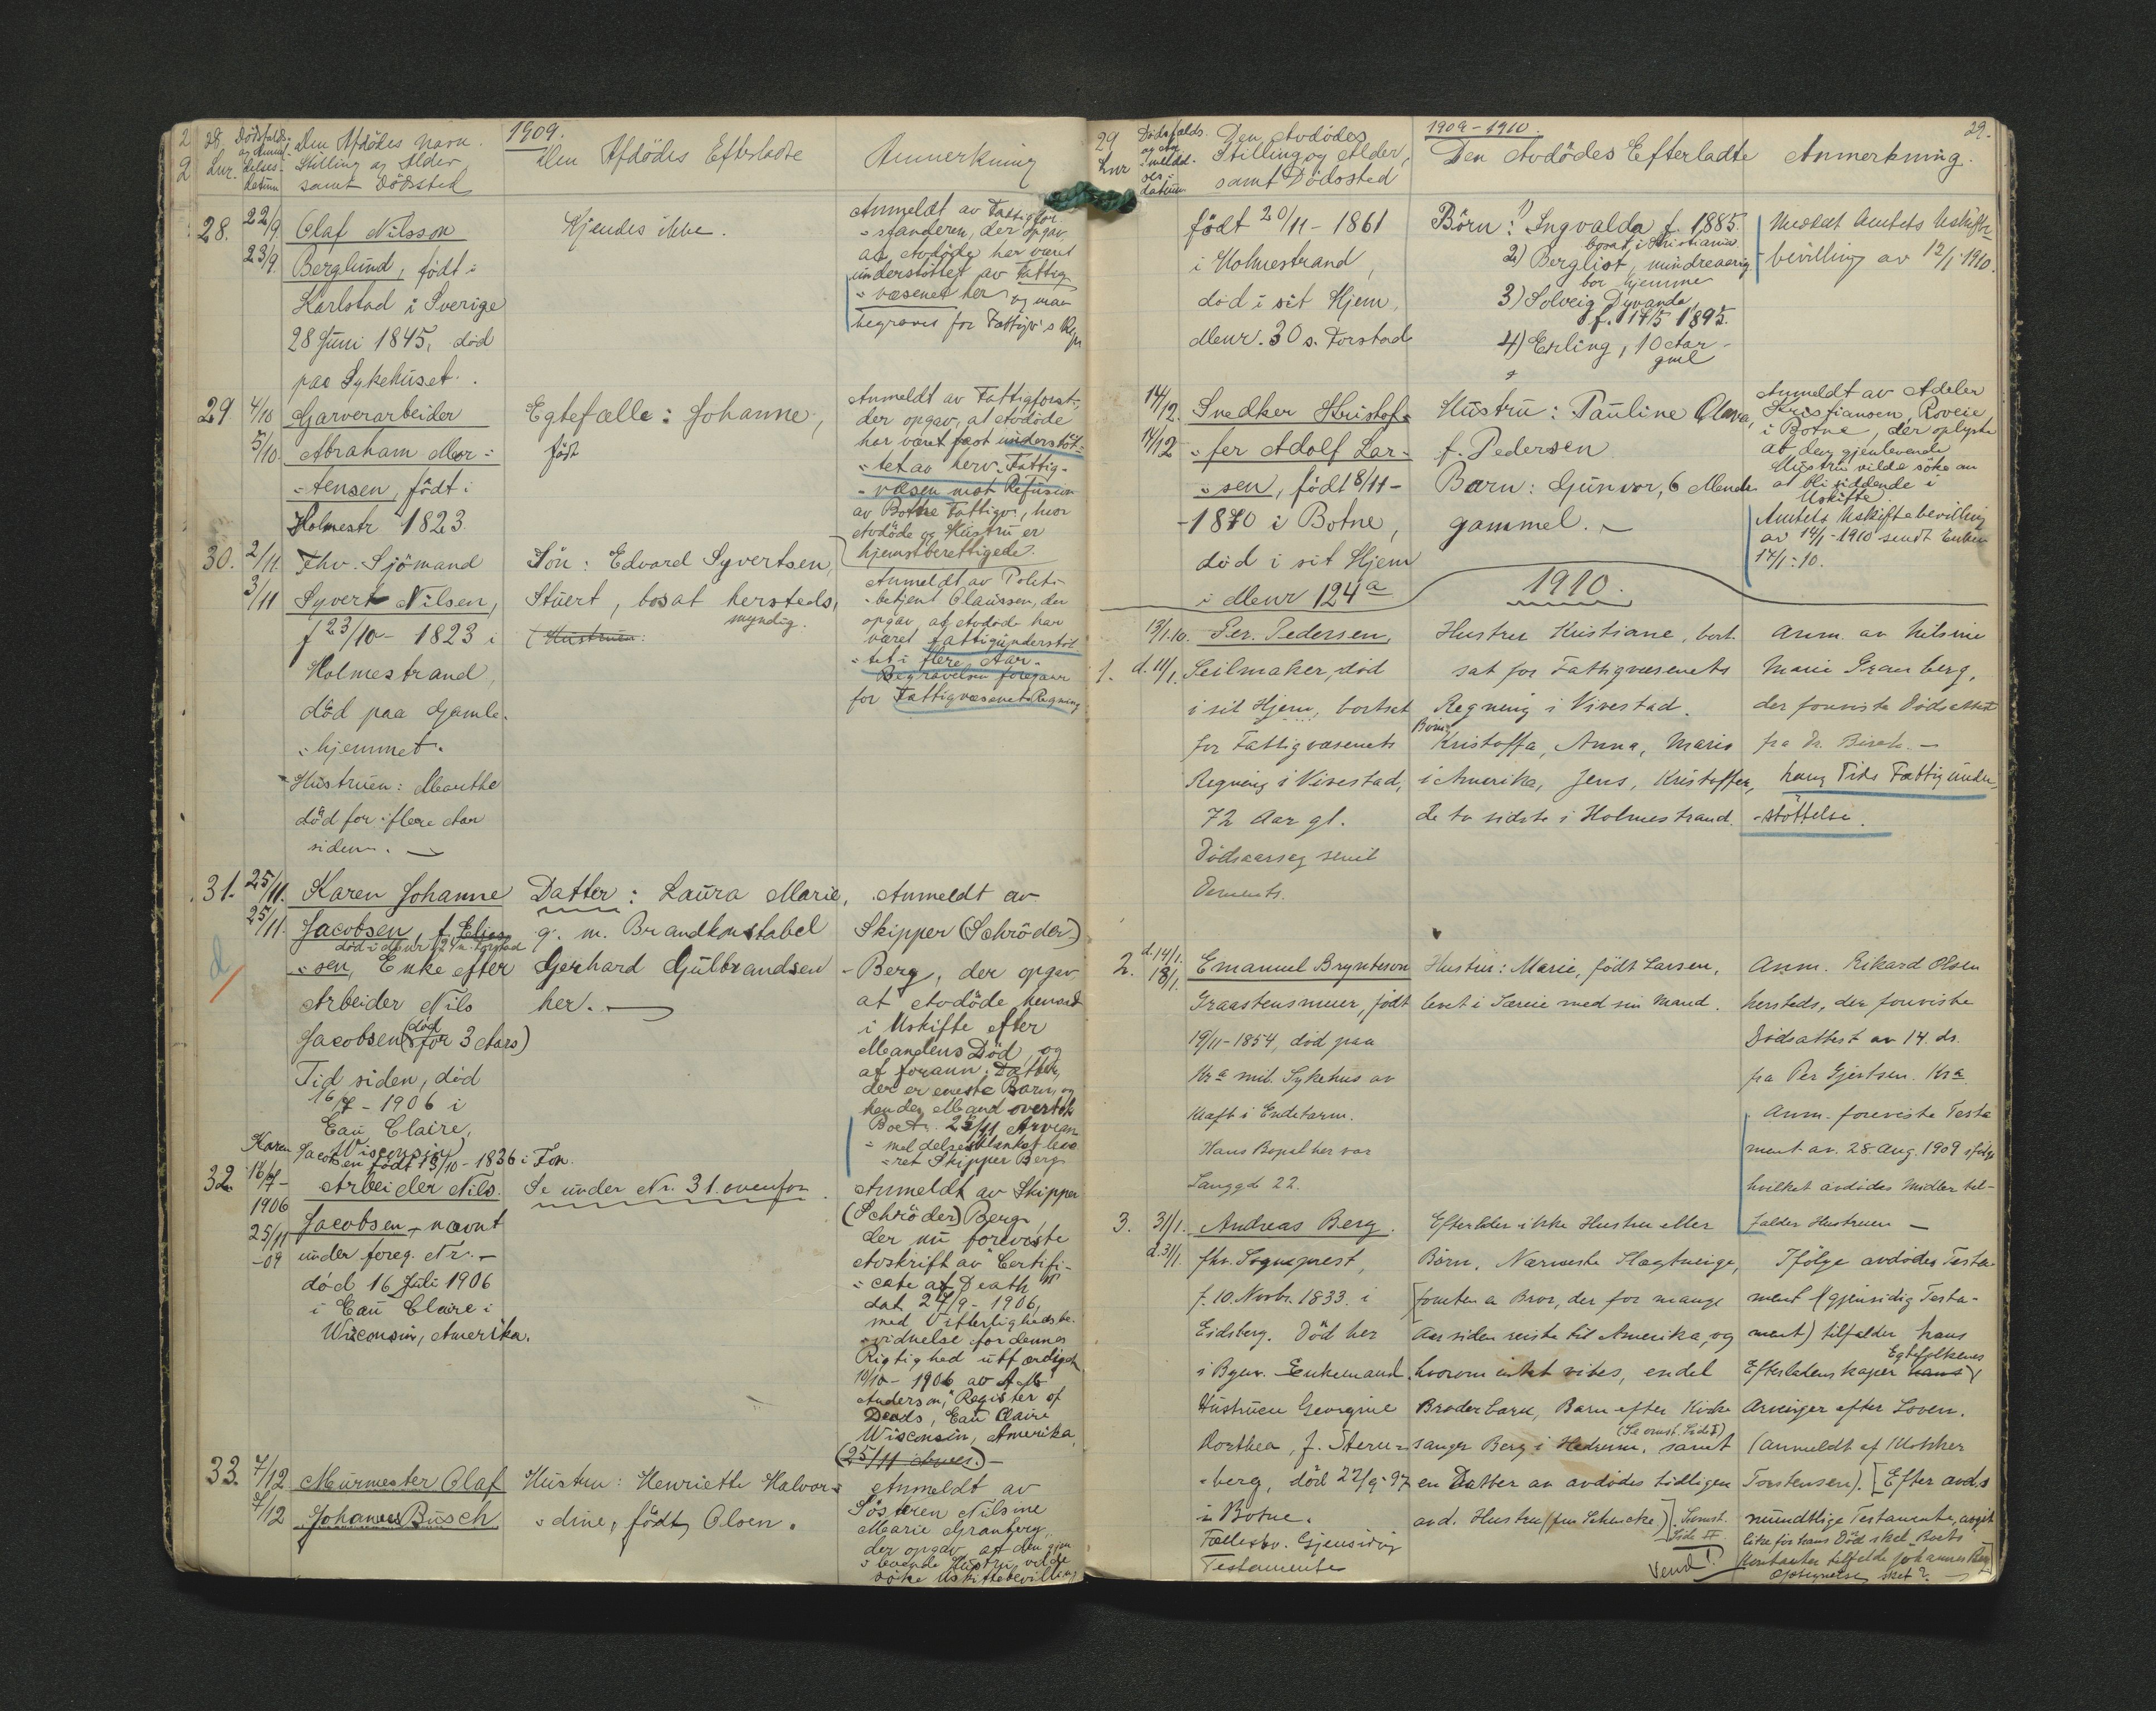 1909.
28. Dödsfalds- Den Afdödes Navn. Den Afdödes Efterladte Anmerkning
Lnr. og Anmel- Stilling og Alder
delses- samt Dödssted
datum
28. 22/9 Olaf Nilsson
23/9. Berglund, födt i
Karlstad i Sverige
28 Juni 1845, död
paa Sykehuset.
Kjendes ikke.
Anmeldt av Fattigfor-
standeren, der opgav,
at Avdöde har været
understöttet av Fattig-
væsenet her og man
begraves for Fattigv's Regn
29. 4/10 Garverarbeider
5/10. Abraham Mor-
tensen, födt i
Holmestr 1823.
Egtefælle: Johanne,
födt
Anmeldt av Fattigforst,
der opgav, at Avdöde
har været fast understöt-
tet av herv. Fattig-
væsen mot Refusion
av Botne Fattigv., hvor
Avdöde og Hustru er
hjemstberettigede.
30. 2/11. Fhv. Sjömand
3/11 Syvert Nilsen,
f 23/10 - 1823 i
Holmestrand,
död paa Gamle-
hjemmet.
Hustruen: Marthe
död for flere Aar
siden.
Sön: Edvard Syvertsen,
Stuert, bosat hersteds,
myndig.
(Hustruen:
Anmeldt av Politi-
betjent Claussen, der
opgav, at Avdöde har
været fattigunderstöt-
tet i flere Aar.
Begravelsen foregaar
for Fattigvæsenets Regning
31. 25/11. Karen Johanne
25/11. Jacobsen, f. Elias-
död i Mnr 124 Torstad
sen, Enke efter
Arbeider Nils
Jacobsen (död
for 3 Aars)
Tid siden, död
16/7 - 1906 i
Eau Claire,
Wisconsin)
Karen Jacobsen födt 13/10 - 1836 i Fon.
Datter: Laura Marie,
g. m. Brandkonstabel
Gerhard Gulbrandsen
her.
Anmeldt av
Skipper (Schröder)
Berg, der opgav
at Avdöde hensad
i Uskifte efter
Mandens Död, og
at forann. Datter,
der er eneste Barn, og
hendes Mand overtok
Boet. 25/11 Arvean-
meldelsesblanket leve-
ret Skipper Berg
32. 16/7- Arbeider Nils
1906 Jacobsen, nævnt
25/11 under foreg. Nr.
-09 död 16 Juli 1906
i Eau Claire i
Wisconsin, Amerika.
Se under Nr. 31. ovenfor
Anmeldt av Skipper
(Schröder) Berg,
der nu foreviste
Avskrift av Certifi-
cate of Death
dat 27/9 - 1906,
med Vitterlighedsbe-
vidnelse for dennes
Rigtighed utfærdiget
10/10 - 1906 av A. M.
Anderson, Register of
Deeds, Eau Claire
Wisconsin, Amerika
33. 7/12 Murmester Olaf
7/12 Johannes Busch
Hustru: Henriette Halvor-
dine, födt Olsen.
Anmeldt av
Söstren Nilsine
Marie Granberg,
der opgav at den gjen-
levende Hustru vilde
söke Uskiftebevilling
1909 - 1910.
29.
29 Dödsfalds- Den Avdödes Den Avdödes Efterladte Anmerkning.
Lnr og An- Stilling og Alder,
meldel- samt Dödssted
ses-
datum
födt 20/11 - 1861
i Holmestrand,
död i sit Hjem,
Mnr. 30 s. Torstad
Börn: 1) Ingvalda f. 1885.
bosat i Kristiania
2) Bergliot, mindreaarig
bor hjemme
3) Solveig Dyvanda,
f. 17/5 1895.
4) Erling, 10 Aar
gml
Meddelt Amtets Uskifte-
bevilling av 12/1 1910.
14/12. Snedker Kristof-
14/12 fer Adolf Lar-
sen, födt 8/11 -
1870 i Botne,
död i sit Hjem
i Mnr 124 a
Hustru: Pauline Olava,
f. Pedersen
Barn: Gunvor, 6 Mnde
gammel.
Anmeldt av Adeler
Kristiansen, Roveie
i Botne, der oplyste
at den gjenlevende
Hustru vilde söke om
at bli siddende i
Uskifte.
Amtets Uskiftebevilling
av 14/1 - 1910 sendt Enken
17/1 - 10.
1910.
13/1.10. Per. Pedersen,
1. d. 11/1. Seilmaker, död
i sit Hjem, bortsat
for Fattigvæsenets
Regning i Vivestad,
72 Aar gl.
Dödsaarsag senil
Dements.
Hustru Kristiane, bort-
sat for Fattigvæsenets
Regning i Vivestad.
Börn:
Kristoffa, Anna, Marie
i Amerika, Jens, Kristoffer,
de to sidste i Holmestrand.
Anm. av Nilsine
Marie Granberg,
der foreviste Dödsattest
fra Dr. Birch.
lang Tids Fattigunder-
stöttelse.
2. d. 14/1. Emanuel Brynteson
18/1. Graastensmurer, födt
19/11 - 1854, död paa
Kra mil. Sykehus av
Kræft i Endetarm.
Hans Bopel her var
Langgd 22.
Hustru: Marie, födt Larsen,
levet i Særeie med sin Mand.
Anm. Rikard Olsen
hersteds, der foreviste
Dödsattest av 14. ds.
fra Per Gjertsen. Kra.
Anm. foreviste Testa-
ment av 28. Aug. 1909 ifölge
hvilket avdödes Midler til-
falder Hustruen
3. 31/1. Andreas Berg.
d. 31/1. fhv. Sogneprest,
f. 10. Novbr. 1833. i
Eidsberg. Död her
i Byen. Enkemand.
Hustruen Georgine
Dorthea, f. Steren-
berg, död 22/9-97
i Botne.
Fællesbo. Gjensidig
Testamente
Efterlder ikke Hustru eller
Börn. Nærmeste Slægtninge,
[foruten en Bror, der for mange
Aar siden reiste til Amerika, og
hvorom intet vites, endel
Broderbarn, Barn efter Kirke-
sanger Berg i Hedrum, samt
en Datter av avdödes tidligere
avd. Hustru (fru Schencke)]
Ifölge avdödes Testa-
ment (gjensidig Testa-
ment) tilfalder hans
Egtefolkenes
Efterladenskaper hans
Arvinger efter Loven.
(Anmeldt af Klokker
Torstensen). [Efter avd.s
mundtlige Testamente, avgit
like för hans Död skal Boets
Kontanter tilfalde Johannes Berg]
Vend!